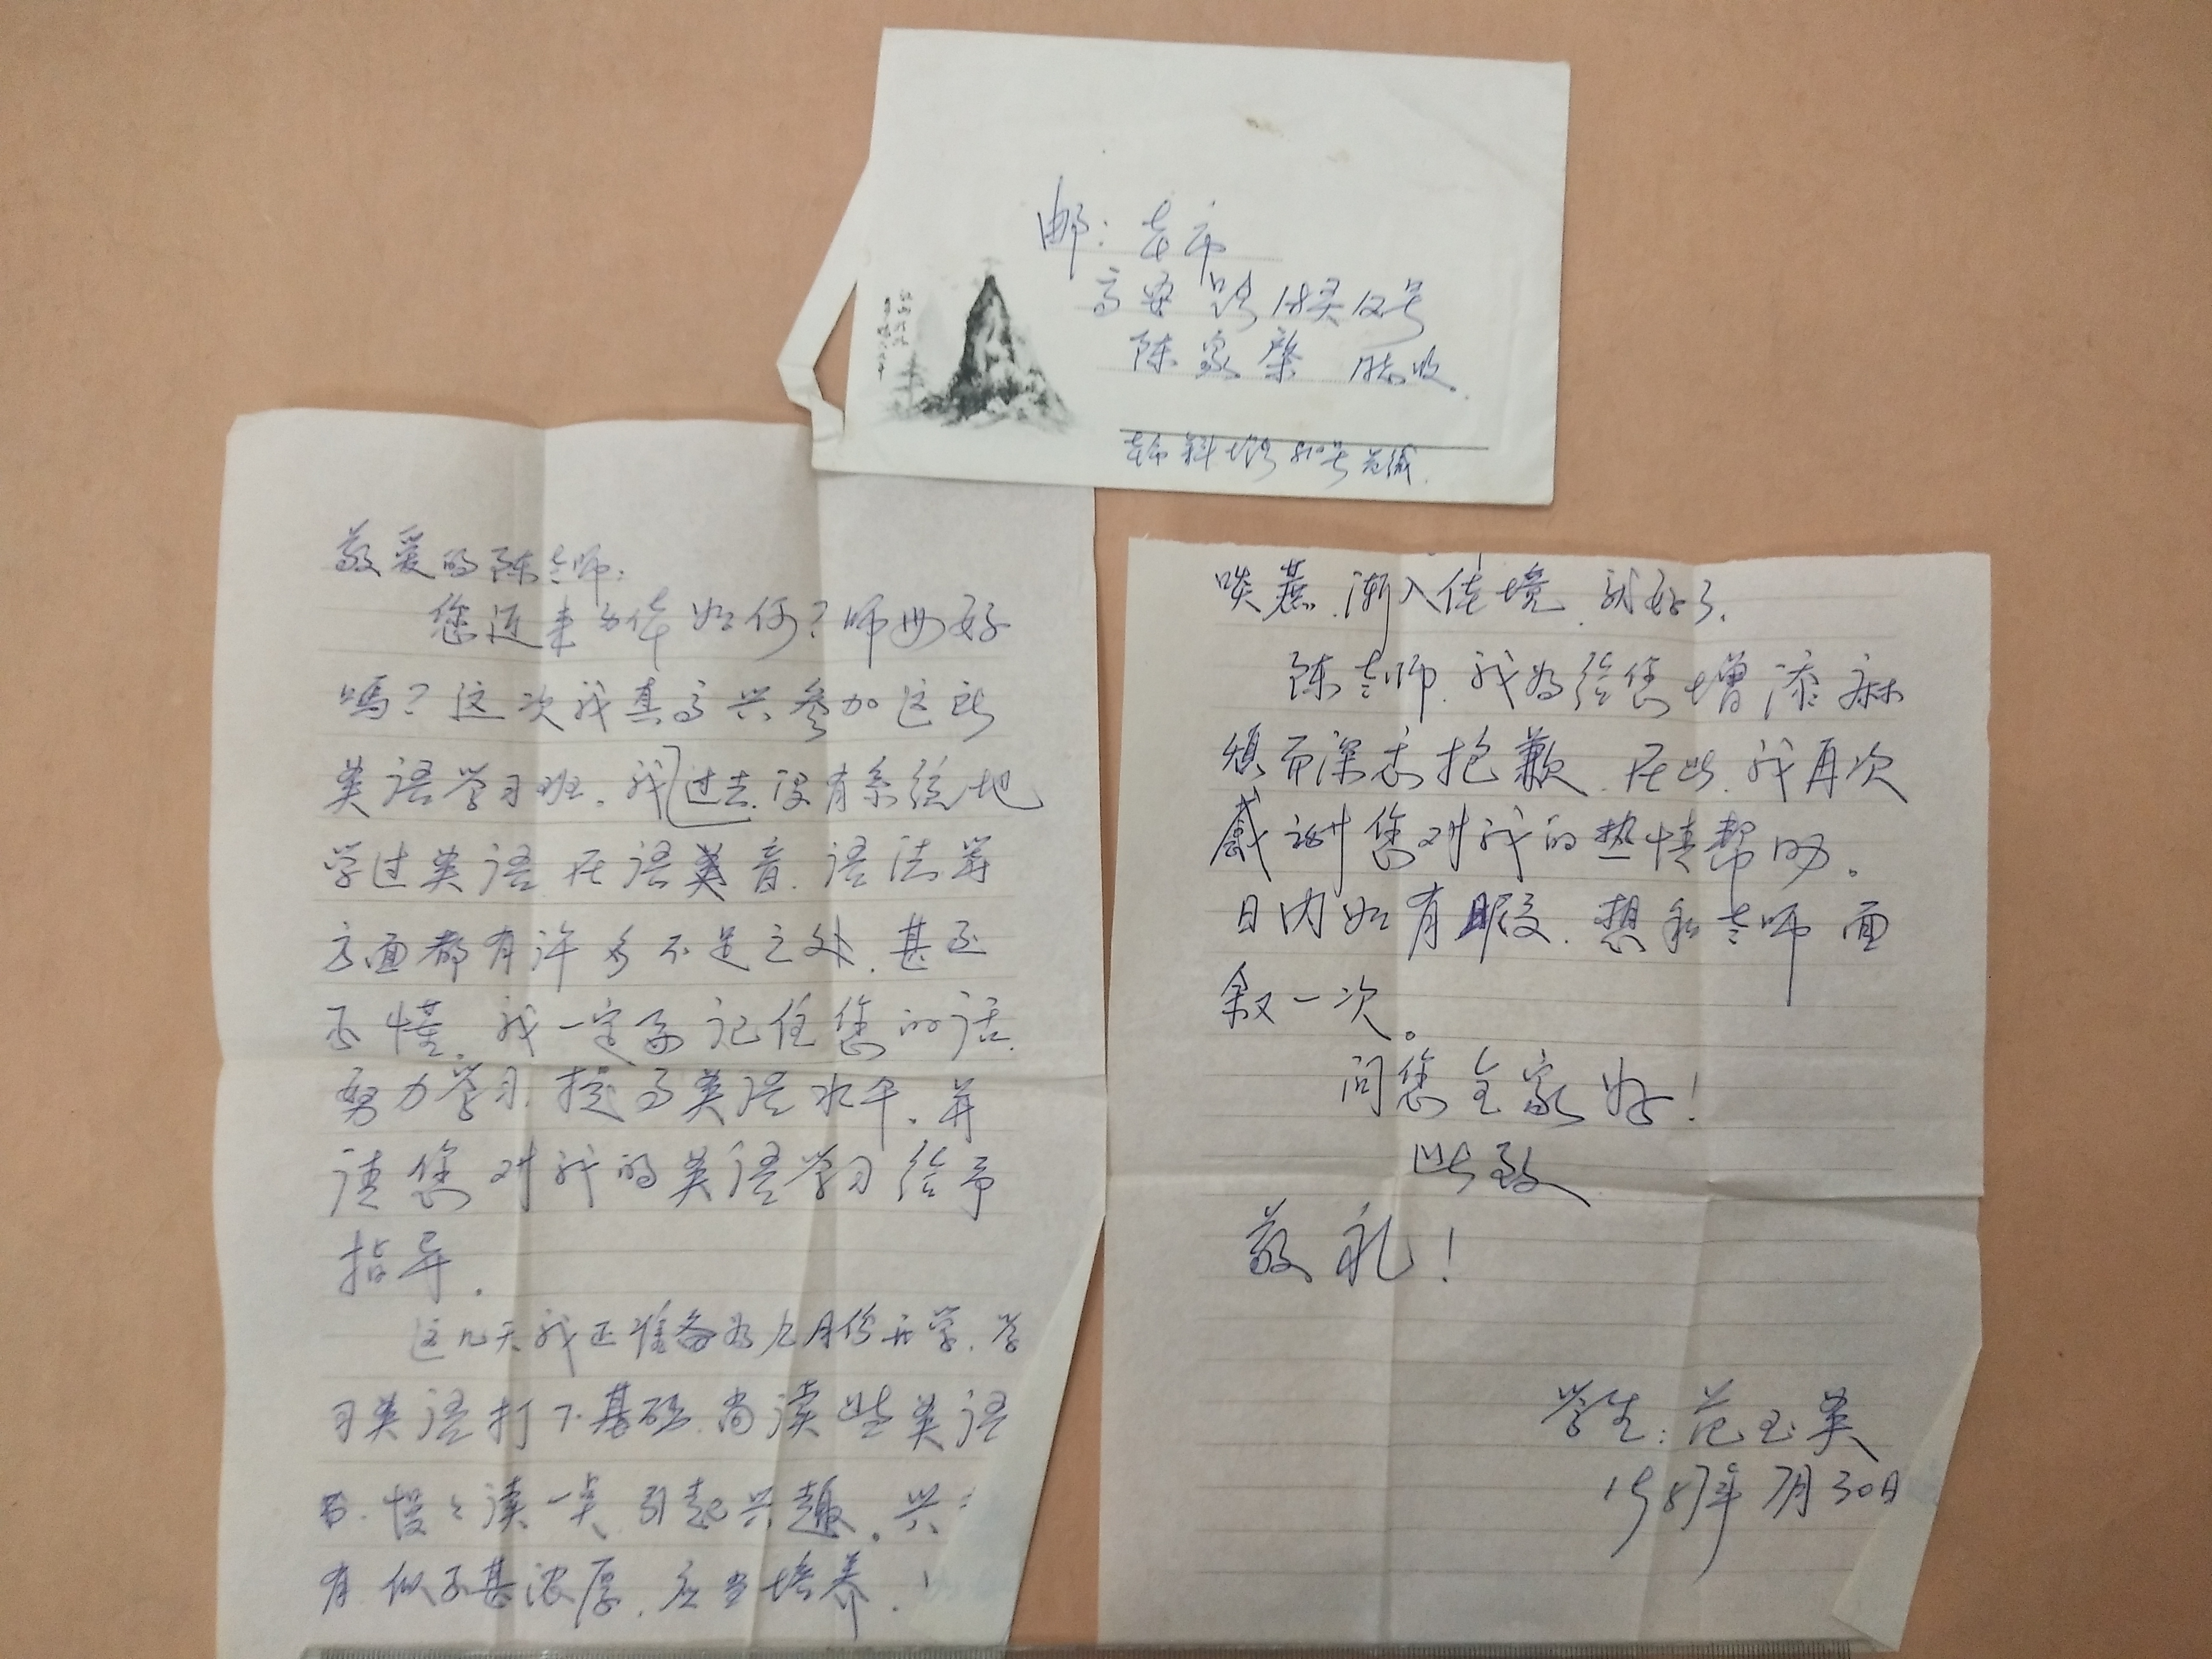 邮：本市
高安路18弄12号
陈家 收
本市 路810号范缄
敬爱的陈老师：
您近来身体如何？师母好
嗎？这次我真高兴参加这段
英语学习班。我过去没有系统地
学过英语，在语音、语法等
方面都有许多不足之处，甚至
不懂。我一定要记住您的话，
努力学习，提高英语水平。并
请您对我的英语学习给予
指导。
这几天我正准备为九月份开学，学
习英语打下基础，尚读些英语
书，慢慢读一点，引起兴趣。兴
有似不甚浓厚，应当培养。
啖蔗，渐入佳境，就好了。
陈老师，我为给您增添麻
烦而深表抱歉。在此，我再次
感谢您对我的热情帮助。
日内如有暇，想和老师面
叙一次。
问您全家好！
此致
敬礼！
学生：范玉英
1987年7月30日